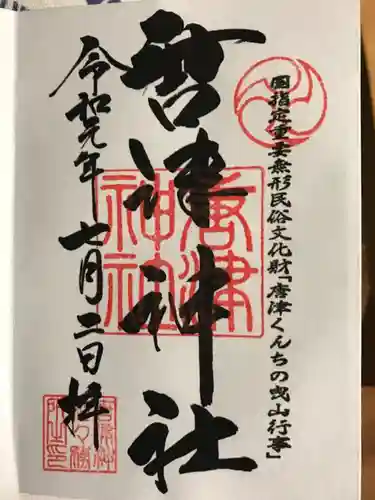 国指定重要無形民俗文化財「唐津くんちの曳山行事」
唐津神社
唐津
神社
令和元年七月二日拝